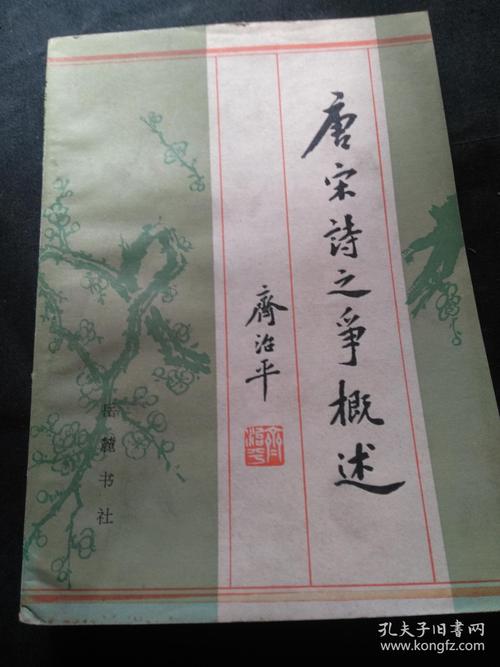 唐宋詩之爭概述
齊治平
齊治平
岳麓书社
孔夫子旧书网
www.kongfz.com